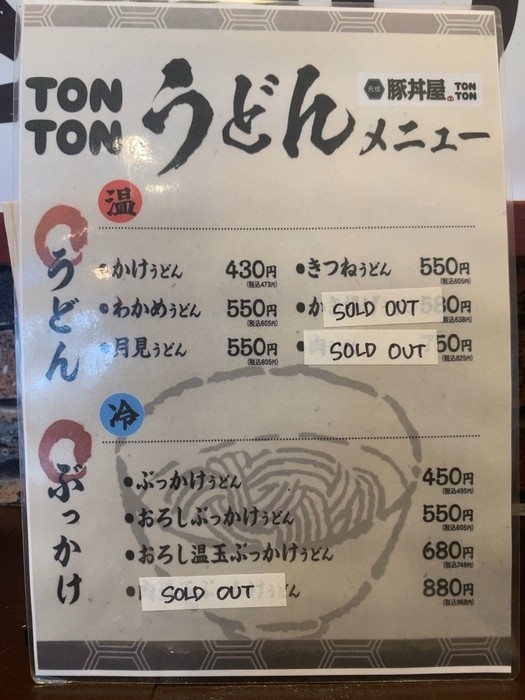 TON
TON
うどん
メニュー
元祖 豚丼屋 TON TON
温
うどん
かけうどん 430円 (税込473円)
きつねうどん 550円 (税込605円)
わかめうどん 550円 (税込605円)
か SOLD OUT 580円 (税込638円)
月見うどん 550円 (税込605円)
肉 SOLD OUT 750円 (税込825円)
冷
ぶっかけ
ぶっかけうどん 450円 (税込495円)
おろしぶっかけうどん 550円 (税込605円)
おろし温玉ぶっかけうどん 680円 (税込748円)
SOLD OUT うどん 880円 (税込968円)